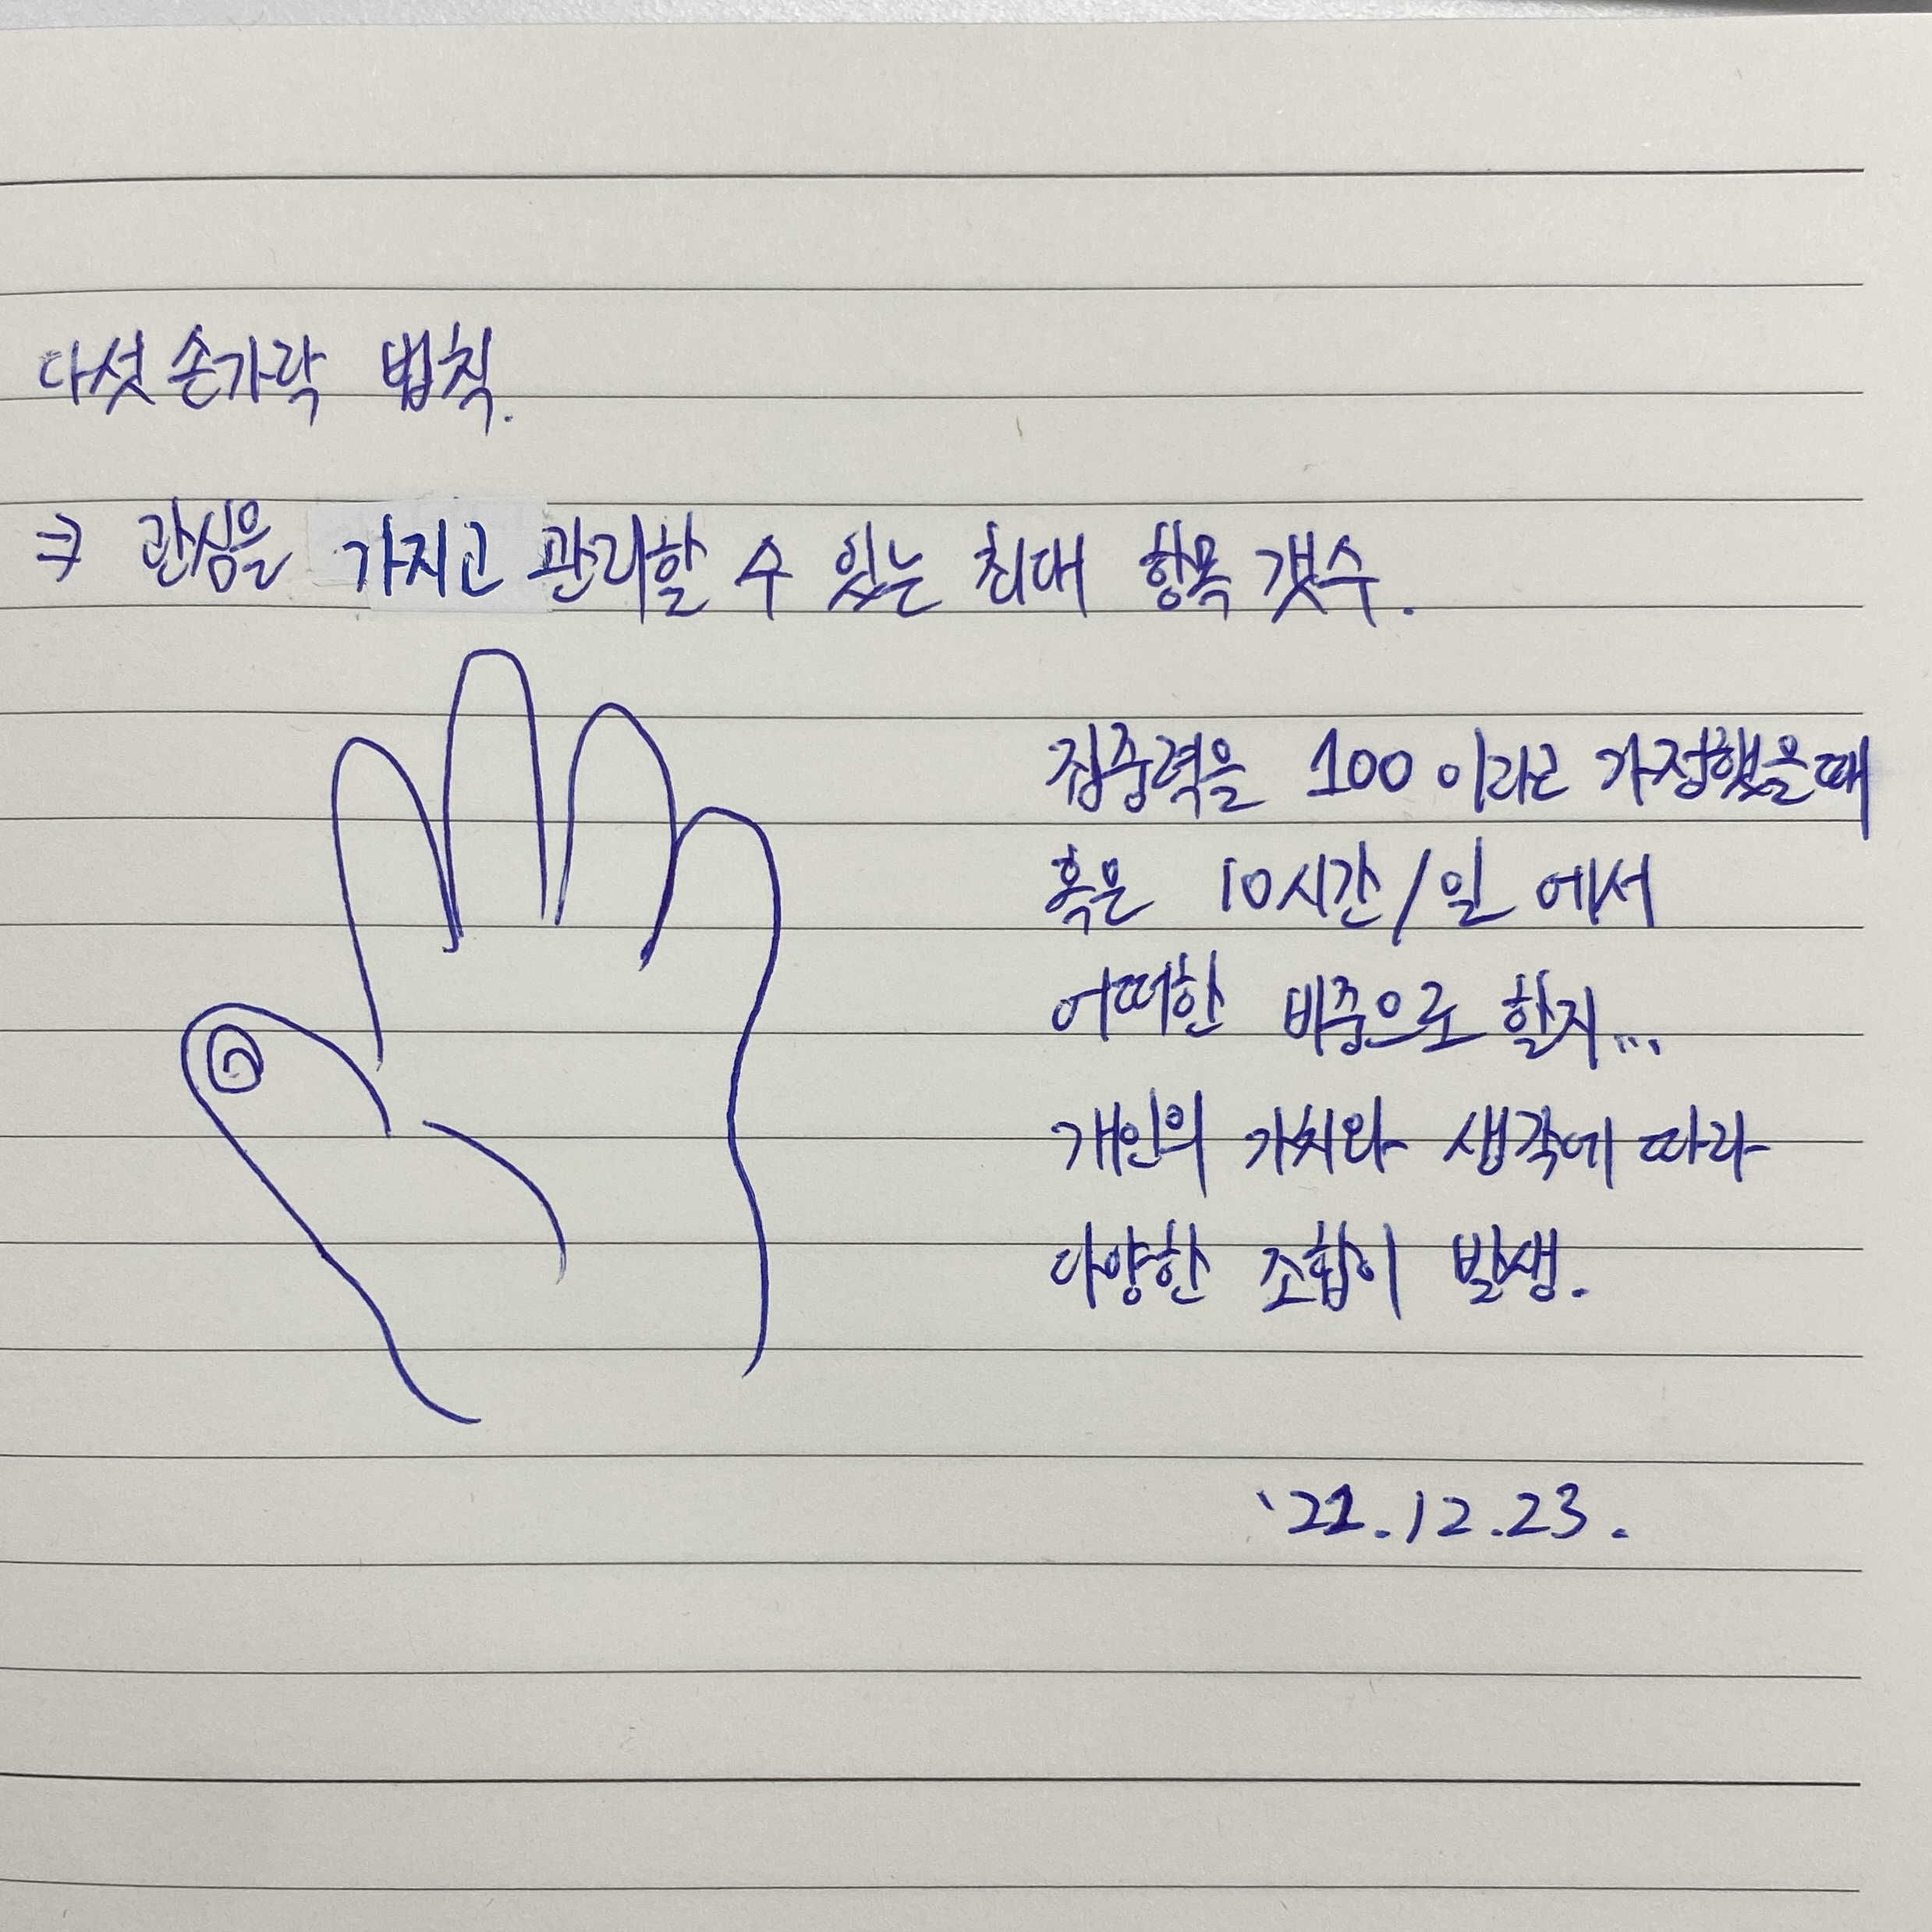 다섯 손가락 법칙.
⇒ 관심을 가지고 관리할 수 있는 최대 항목 갯수.
집중력을 100 이라고 가정했을때
혹은 10시간/일 에서
어떠한 비중으로 할지...
개인의 가치와 생각에 따라
다양한 조합이 발생.
'21.12.23.